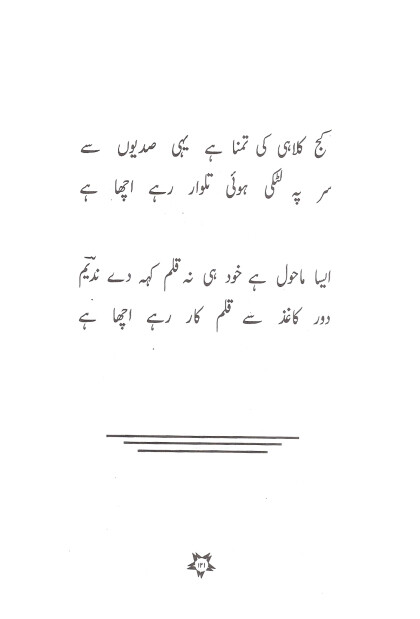 کج کلاہی کی تمنا ہے یہی صدیوں سے
سر پہ لٹکی ہوئی تلوار رہے اچھا ہے
ایسا ماحول ہے خود ہی نہ قلم کہہ دے ندیمؔ
دور کاغذ سے قلم کار رہے اچھا ہے
۱۳۱